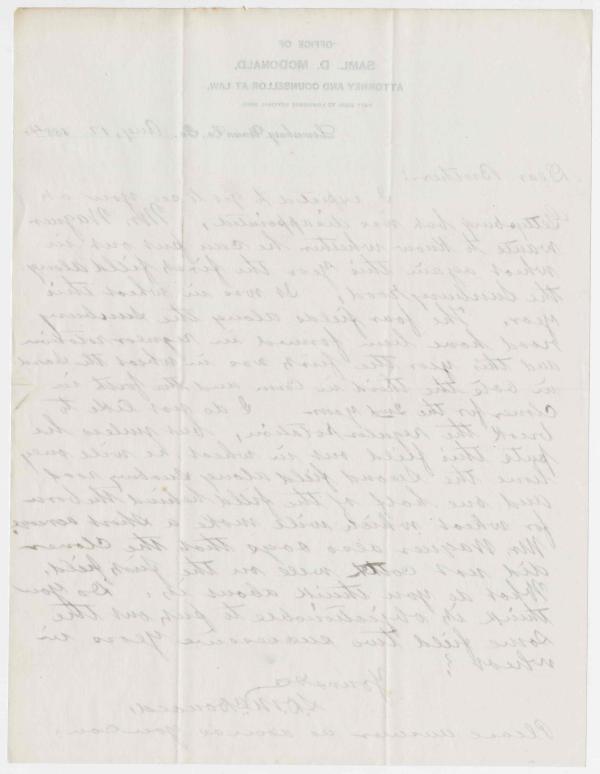 OFFICE OF
SAML. D. McDONALD,
ATTORNEY AND COUNSELLOR AT LAW,
NEXT DOOR TO LEWISBURG NATIONAL BANK
Lewisburg Union Co. Pa. Aug. 12 188
Dear Brother:
I expected to get to see you at
Gettysburg but was disappointed, Mr. Wagner
wants to know whether he can put out in
wheat again this year the first field along
the Sunbury road, It was in wheat this
year. The four fields along the Sunbury
road have been farmed in regular rotation
and this year the first was in wheat the second
in oats the third in corn and the first in
clover for the 2nd year. I do not like to
break the regular rotation, but unless he
puts this field out in wheat he will only
have the second field along Sunbury road
and one half of the field behind the barn
for wheat which will make a short acreage
Mr. Wagner also says that the clover
did not catch well on the first field,
What do you think about it, Do you
think it objectionable to put out the
same field two successive years in
wheat?
Yours &c
S. D. McDonald,
Please answer as soon as you can.